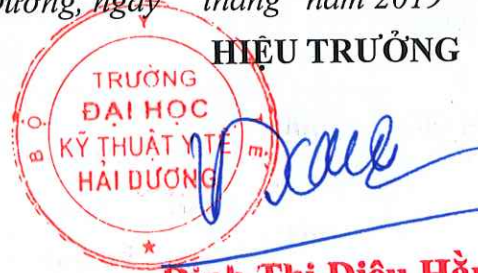 ương, ngày tháng năm 2019
HIỆU TRƯỞNG
TRƯỜNG
ĐẠI HỌC
KỸ THUẬT Y TẾ
HẢI DƯƠNG
BỘ Y TẾ
Thị Diệu